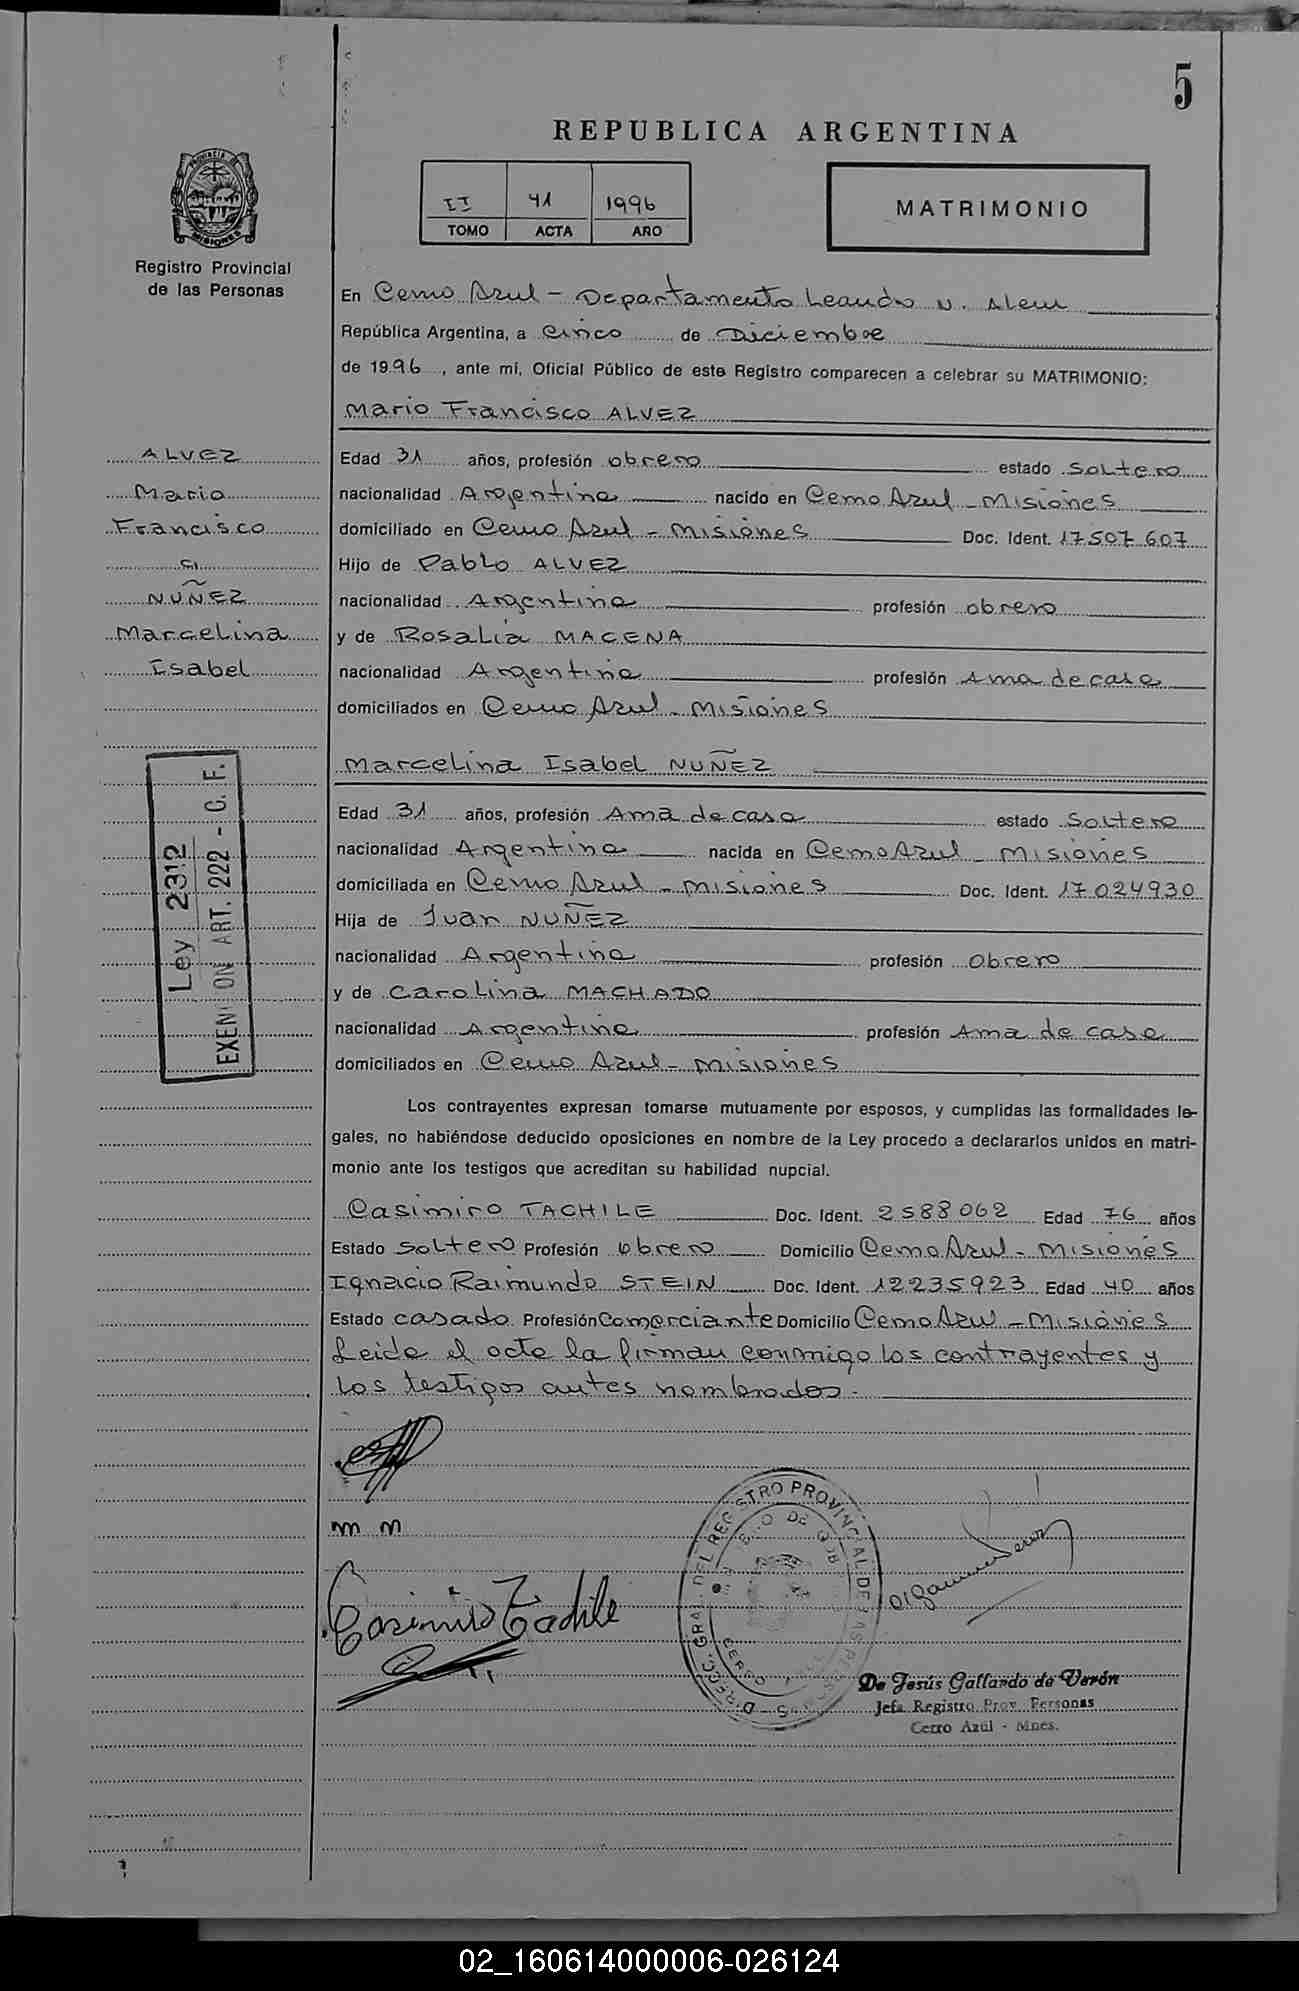 5
REPUBLICA ARGENTINA
II 41 1996
TOMO ACTA AÑO
MATRIMONIO
PROVINCIA DE
MISIONES
Registro Provincial
de las Personas
En Cerro Azul - Departamento Leandro N. Alem
República Argentina, a Cinco de Diciembre
de 1996, ante mí, Oficial Público de este Registro comparecen a celebrar su MATRIMONIO:
Mario Francisco ALVEZ
Edad 31 años, profesión obrero estado Soltero
nacionalidad Argentina nacido en Cerro Azul - Misiones
domiciliado en Cerro Azul - Misiones Doc. Ident. 17507607
Hijo de Pablo ALVEZ
nacionalidad Argentina profesión obrero
y de Rosalia MACENA
nacionalidad Argentina profesión Ama de casa
domiciliados en Cerro Azul - Misiones
Marcelina Isabel NUÑEZ
Edad 31 años, profesión Ama de casa estado Soltera
nacionalidad Argentina nacida en Cerro Azul - Misiones
domiciliada en Cerro Azul - Misiones Doc. Ident. 17024930
Hija de Juan NUÑEZ
nacionalidad Argentina profesión Obrero
y de Carolina MACHADO
nacionalidad Argentina profesión Ama de casa
domiciliados en Cerro Azul - Misiones
Los contrayentes expresan tomarse mutuamente por esposos, y cumplidas las formalidades le-
gales, no habiéndose deducido oposiciones en nombre de la Ley procedo a declararlos unidos en matri-
monio ante los testigos que acreditan su habilidad nupcial.
Casimiro TACHILE Doc. Ident. 2588062 Edad 76 años
Estado Soltero Profesión Obrero Domicilio Cerro Azul - Misiones
Ignacio Raimundo STEIN Doc. Ident. 12235923 Edad 40 años
Estado casado Profesión Comerciante Domicilio Cerro Azul - Misiones
Leida el acta la firman conmigo los contrayentes y
los testigos antes nombrados.
ALVEZ
Mario
Francisco
NUÑEZ
Marcelina
Isabel
Ley 2312
EXENCION ART. 222 - C. F.
m n
Casimiro Tachile
DIRECC. GRAL. DEL REGISTRO PROVINCIAL DE LAS PERSONAS
CERRO
De Jesús Gallardo de Verón
Jefa Registro Prov. Personas
Cerro Azul - Mnes.
02_160614000006-026124